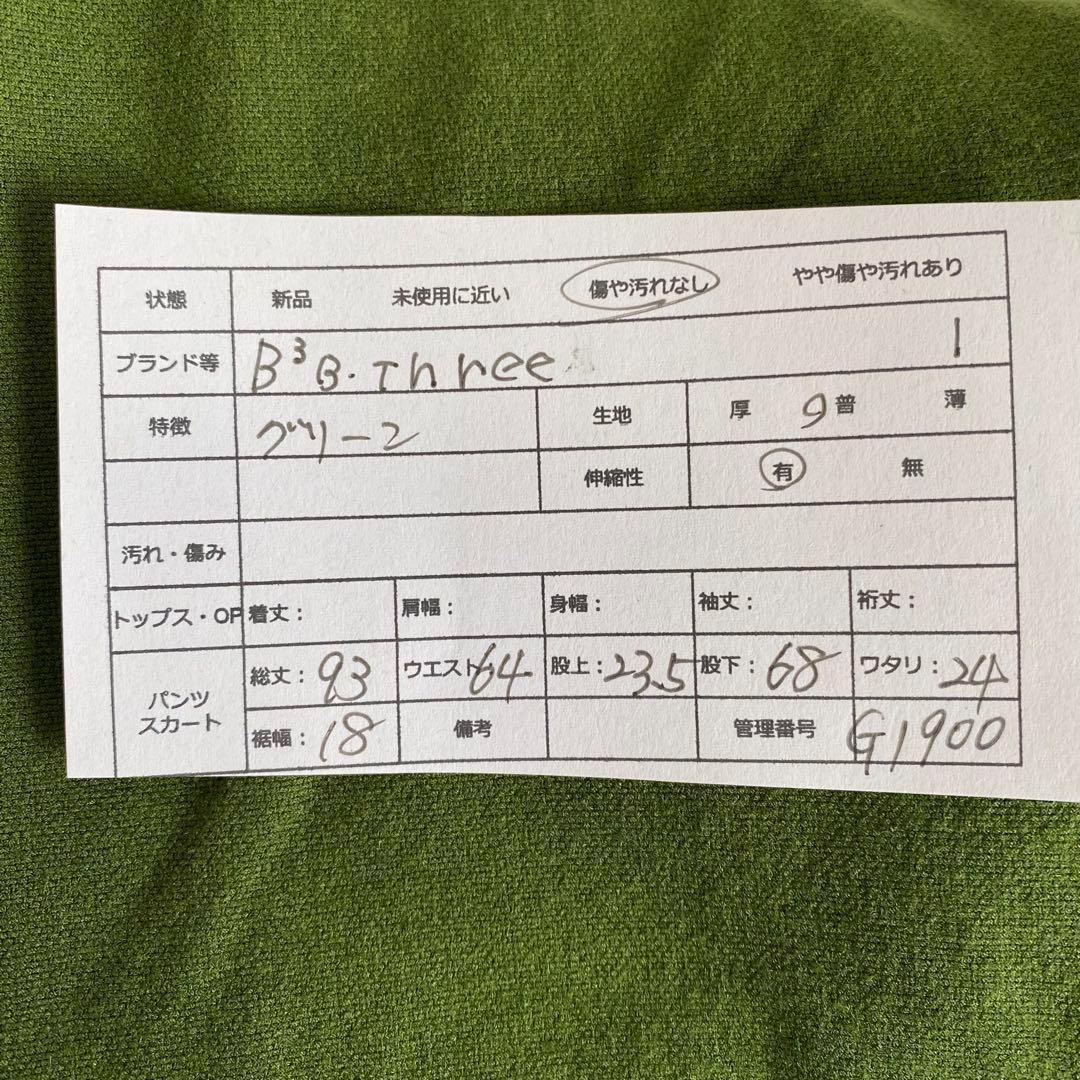 状態 新品 未使用に近い 傷や汚れなし やや傷や汚れあり
ブランド等 B³B.Three 1
特徴 グリーン 生地 厚 普 薄
伸縮性 有 無
汚れ・傷み
トップス・OP 着丈： 肩幅： 身幅： 袖丈： 裄丈：
パンツ スカート 総丈：93 ウエスト：64 股上：23.5 股下：68 ワタリ：24
裾幅：18 備考 管理番号 G1900